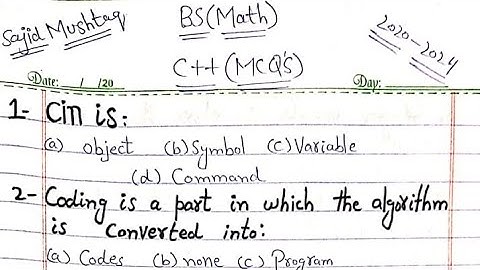 Sajid Mushteq
BS(Math)
2020-2024
C++ (MCQ'S)
Date: / /20
Day:
1- Cin is:
(a) object (b) Symbol (c) Variable
(d) Command
2- Coding is a part in which the algorithm
is Converted into:
(a) Codes (b) none (c) Program